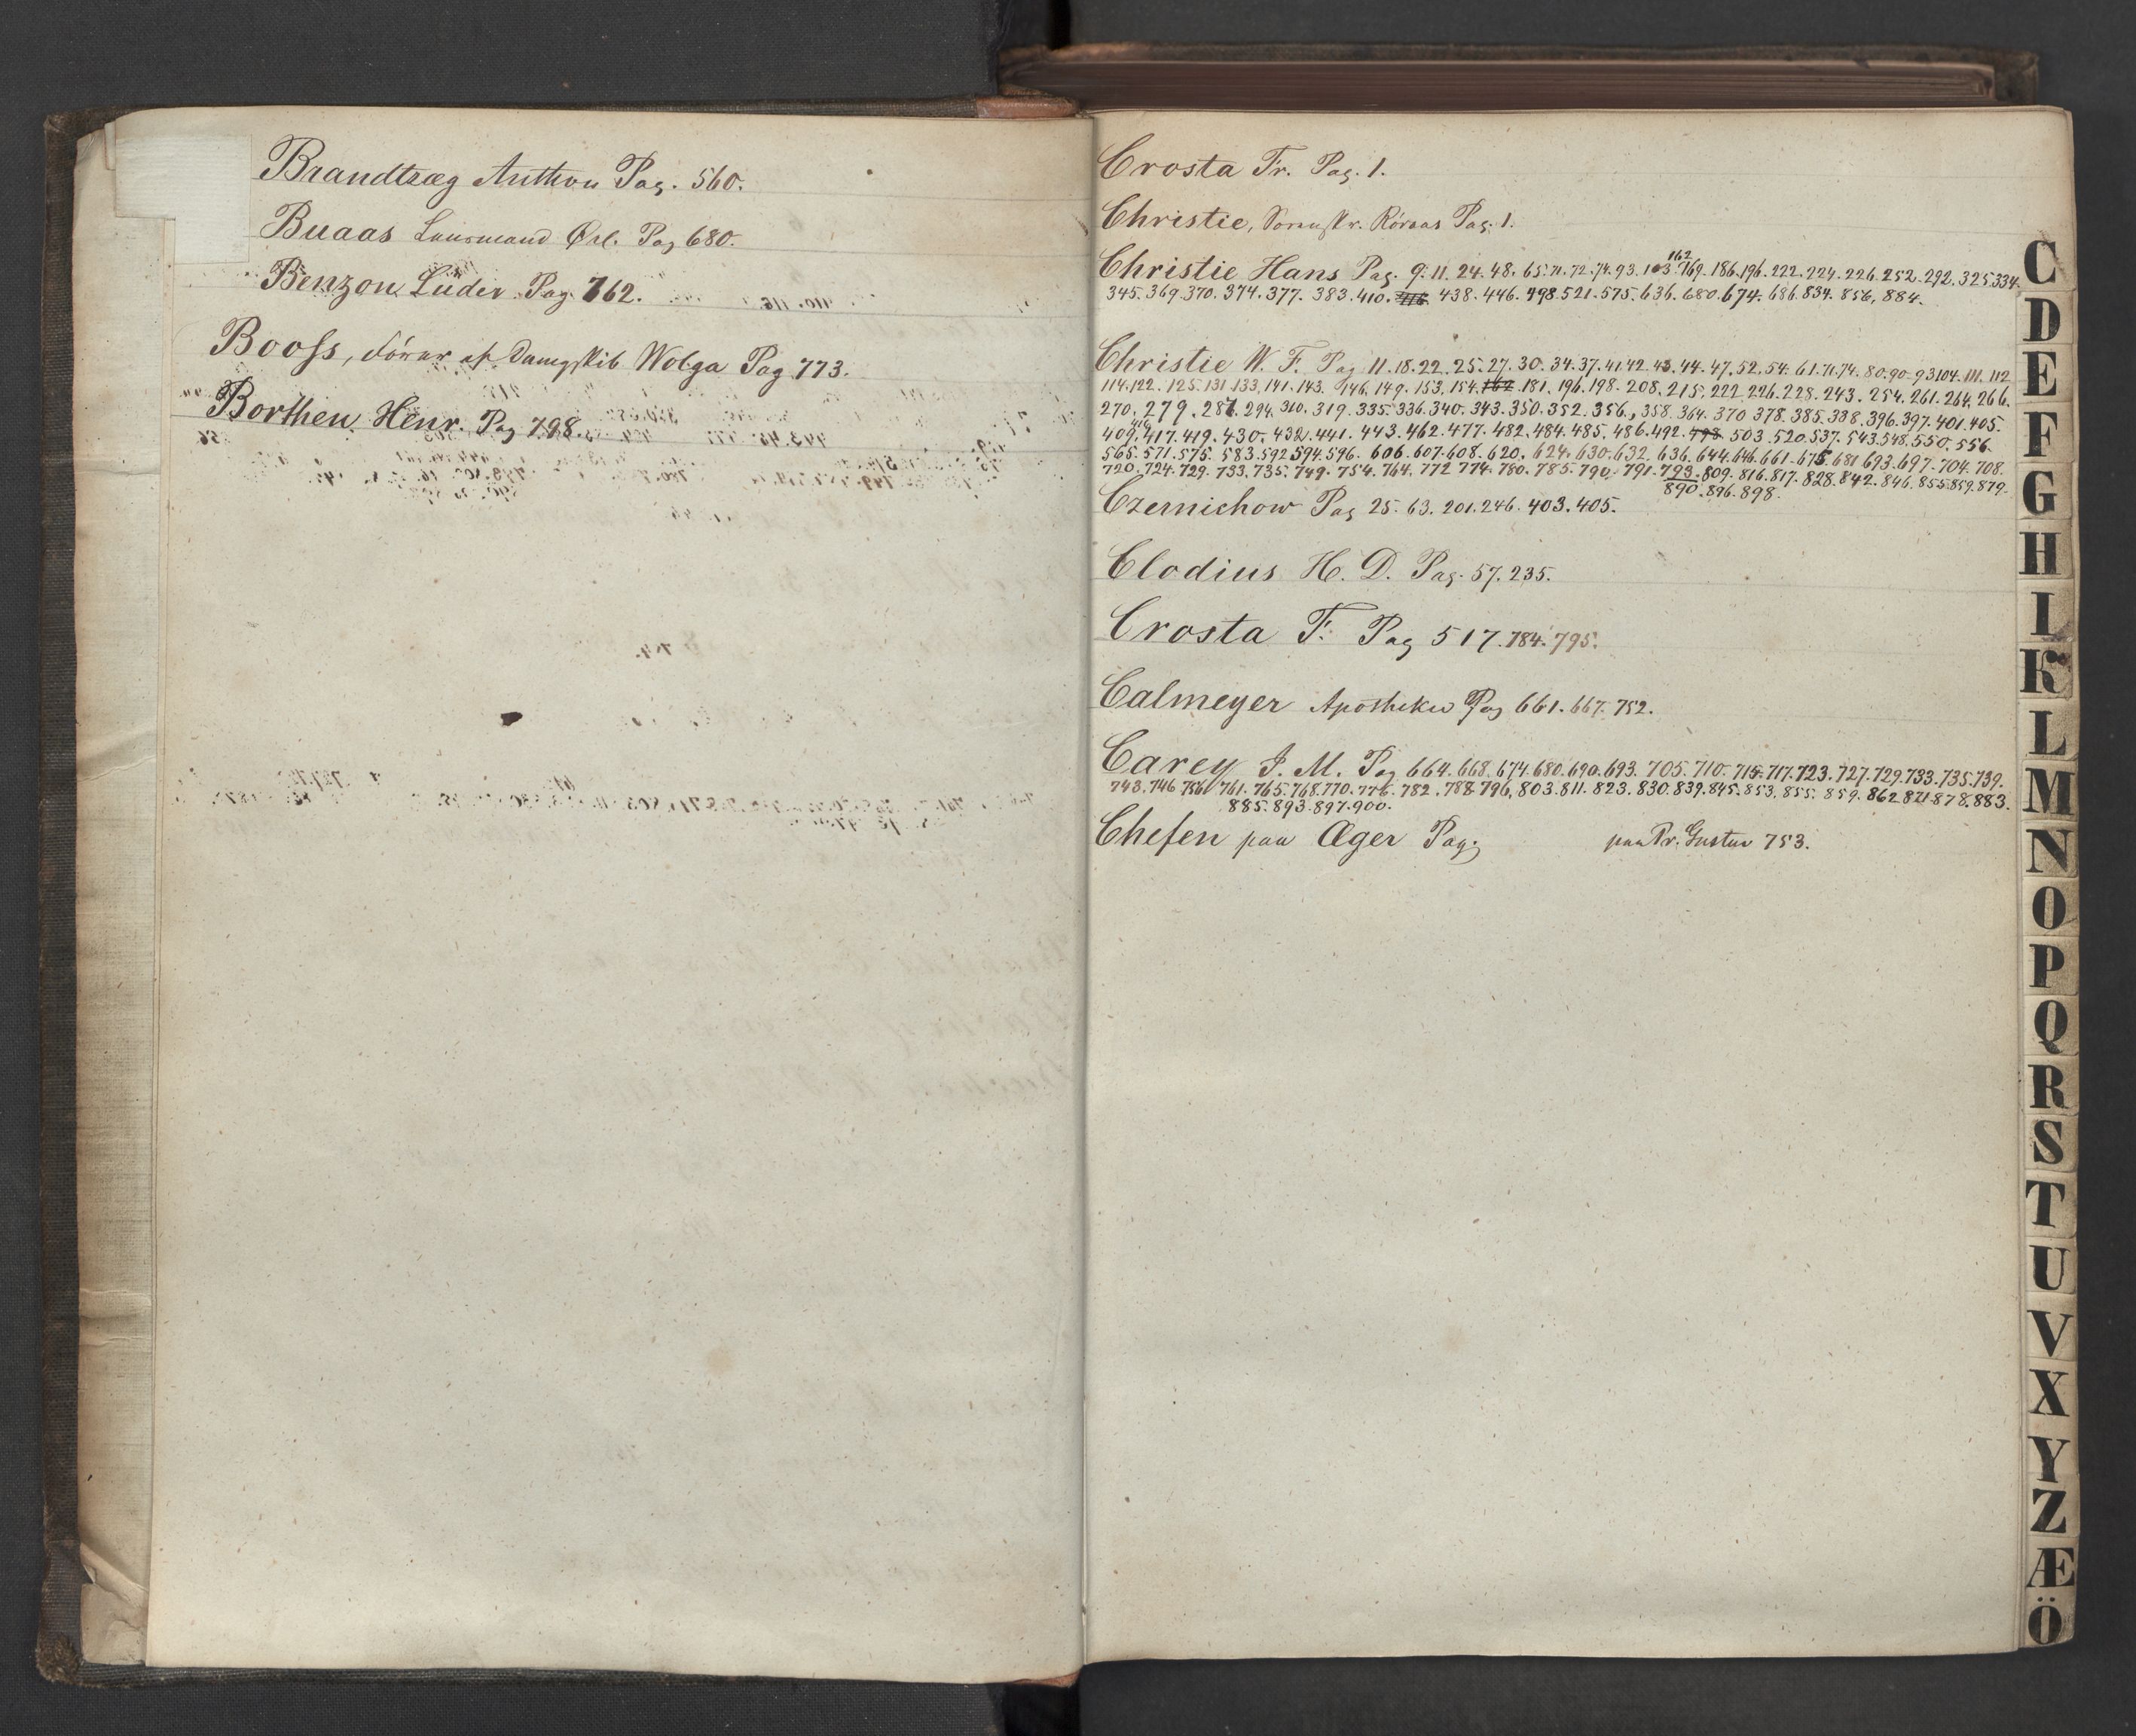 Brandtzæg Anthon Pag. 560.
Buaas Lensmand Ørl. Pag 680.
Benzon Lüder Pag. 762.
Booss, Fører af Dampskib Wolga Pag 773.
Borthen Henr. Pag 798.
Crosta Fr. Pag. 1.
Christie, Sorenskr. Røraas Pag. 1.
162
Christie Hans Pag. 9. 11. 24. 48. 65. 71. 72. 74. 93. 103. 169. 186. 196. 222. 224. 226. 252. 292. 325. 334.
345. 369. 370. 374. 377. 383. 410. 416. 438. 446. 498. 521. 575. 636. 680. 674. 686. 834. 856. 884.
Christie W. F. Pag 11. 18. 22. 25. 27. 30. 34. 37. 41. 42. 43. 44. 47. 52. 54. 61. 71. 74. 80. 90. 93. 104. 111. 112
114. 122. 125. 131. 133. 141. 143. 146. 149. 153. 154. 162. 181. 196. 198. 208. 215. 222. 226. 228. 243. 254. 261. 264. 266.
270. 279. 287. 294. 310. 319. 335. 336. 340. 343. 350. 352. 356. 358. 364. 370. 378. 385. 388. 396. 397. 401. 405.
416
409. 417. 419. 430. 432. 441. 443. 462. 477. 482. 484. 485. 486. 492. 498. 503. 520. 537. 543. 548. 550. 556.
565. 571. 575. 583. 592. 594. 596. 606. 607. 608. 620. 624. 630. 632. 636. 644. 646. 661. 675. 681. 693. 697. 704. 708.
720. 724. 729. 733. 735. 749. 754. 764. 772. 774. 780. 785. 790. 791. 793. 809. 816. 817. 828. 842. 846. 855. 859. 879.
890. 896. 898.
Czernichow Pag 25. 63. 201. 246. 403. 405.
Clodius H. D. Pag. 57. 235.
Crosta F. Pag 517. 784. 795.
Calmeyer Apotheker Pag 661. 667. 752.
Carey J. M. Pag 664. 668. 674. 680. 690. 693. 705. 710. 715. 717. 723. 727. 729. 733. 735. 739.
743. 746. 756. 761. 765. 768. 770. 776. 782. 788. 796. 803. 811. 823. 830. 839. 845. 853. 855. 859. 862. 871. 878. 883.
885. 893. 897. 900.
Chefen paa Æger Pag. paa Pr. Gustav 753.
C
D
E
F
G
H
I
K
L
M
N
O
P
Q
R
S
T
U
V
X
Y
Z
Æ
Ö